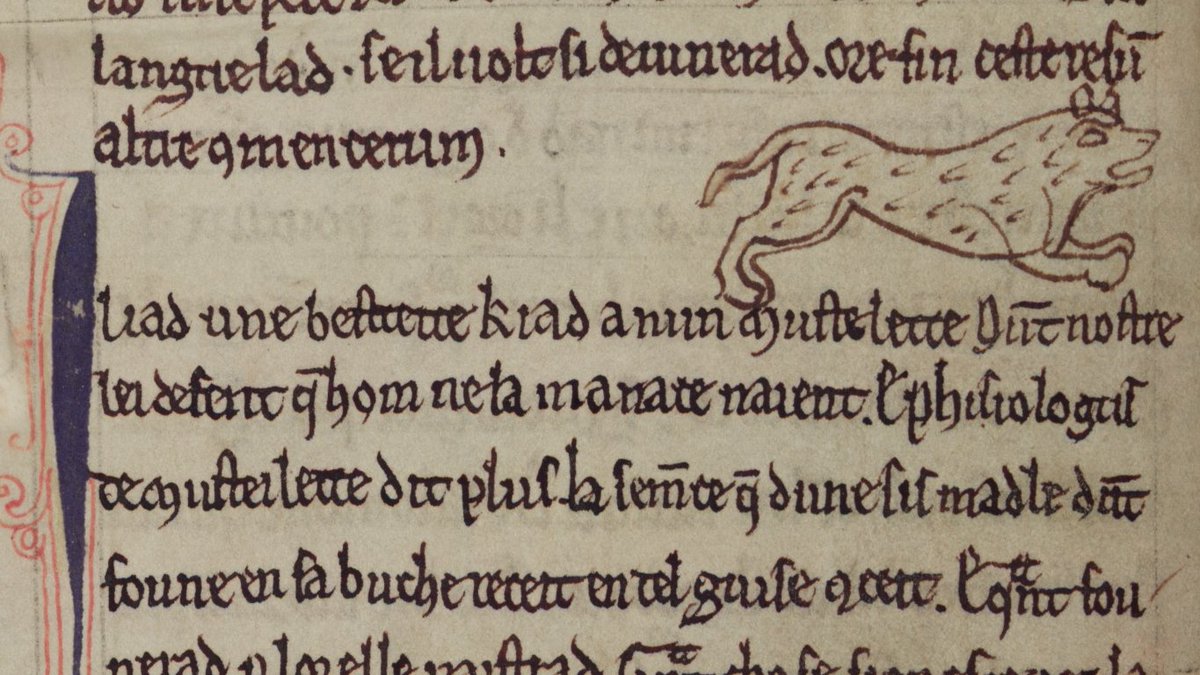 langue lad . se il uolt si deuinerad . ore fin ceste resū
altre ꝯmencerum .
Il i ad une bestette ki ad a nun mustelette Dūt nostre
lei defent q̄ hom ne la manace naient . E phisiologus
de musteilette dit plus . la sem̄ce q̄ dune sis madle dūt
foune en sa buche receit en tel guise ꝯceit . E qᵃnt fou
nerad